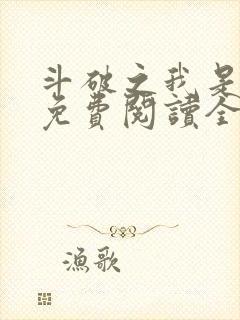 斗破之我是
免費閱讀全
漁歌